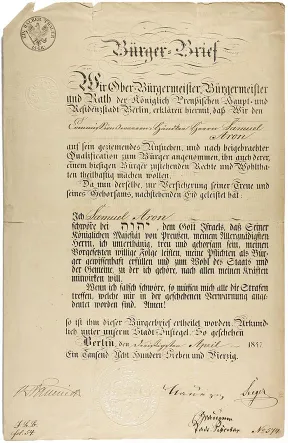 Bürger-Brief
Wir Ober-Bürgermeister, Bürgermeister
und Rath der Königlich Preußischen Haupt- und
Residenzstadt Berlin, erklären hiermit, daß Wir den
Händler Herrn Samuel
Aron
auf sein geziemendes Ansuchen, und nach beigebrachter
Qualification zum Bürger angenommen, ihn auch derer,
einem hiesigen Bürger zustehenden Rechte und Wohltha-
ten theilhaftig machen wollen.
Da nun derselbe, zur Versicherung seiner Treue und
seines Gehorsams, nachstehenden Eid geleistet hat:
Ich Samuel Aron
schwöre bei יהוה, dem Gott Israels, daß Seiner
Königlichen Majestät von Preußen, meinem Allergnädigsten
Herrn, ich unterthänig, treu und gehorsam sein, meinen
Vorgesetzten willige Folge leisten, meine Pflichten als Bür-
ger gewissenhaft erfüllen und zum Wohl des Staats und
der Gemeine, zu der ich gehöre, nach allen meinen Kräften
mitwirken will.
Wenn ich falsch schwöre, so müssen mich alle die Strafen
treffen, welche mir in der geschehenen Verwarnung ange-
deutet worden sind. Amen!
so ist ihm dieser Bürgerbrief ertheilet worden. Urkund-
lich unter unserm Stadt-Insiegel. So geschehen
Berlin, den April 184
Ein Tausend Acht Hundert Sieben und Vierzig.